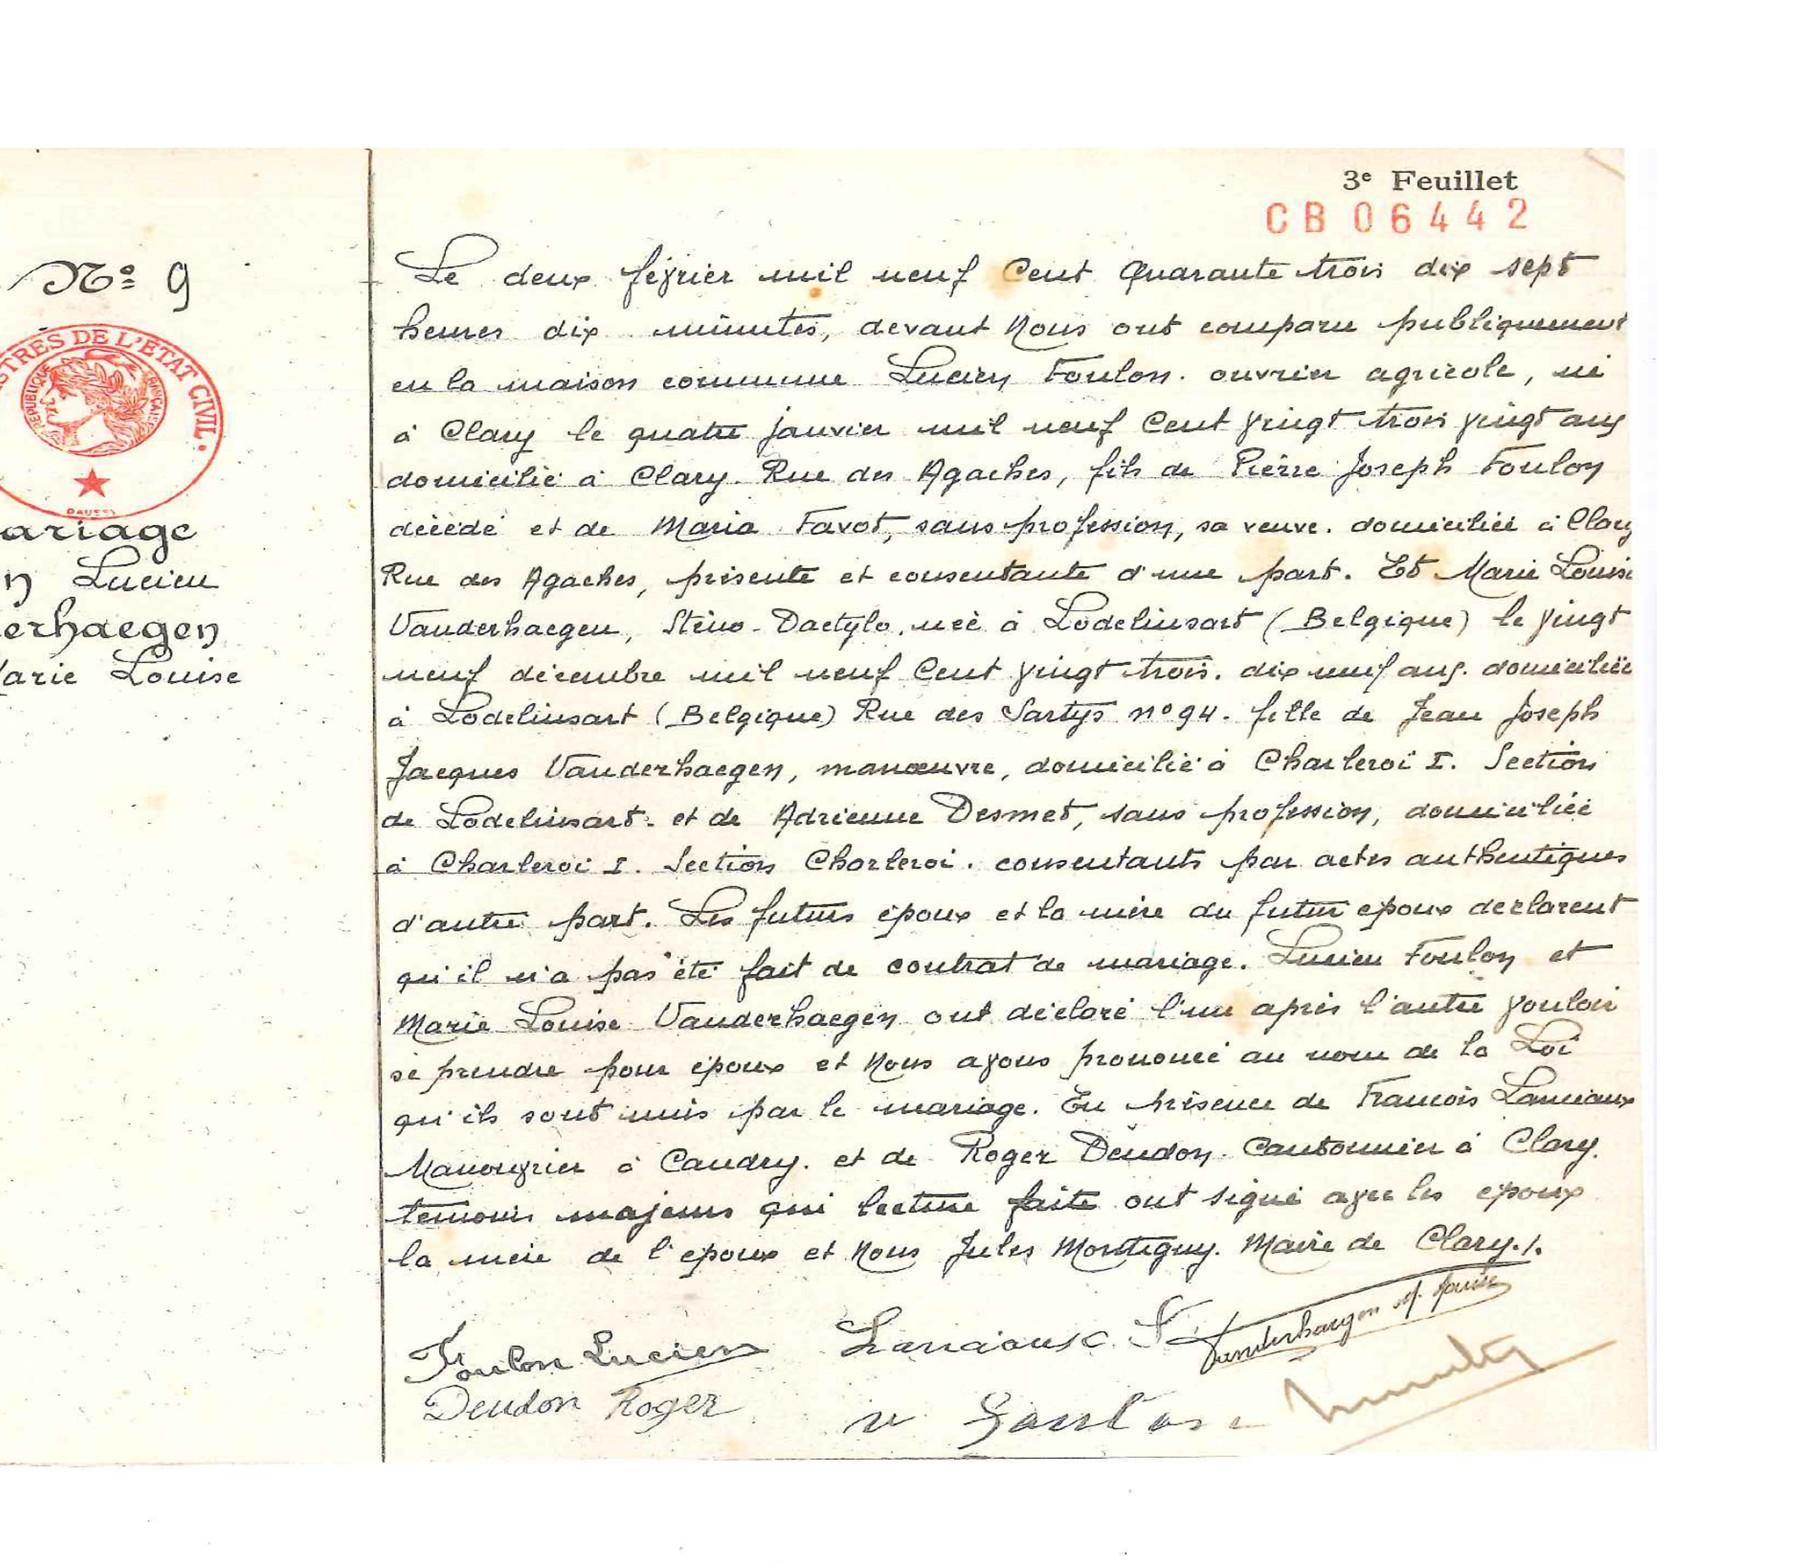 3e Feuillet
CB 06442
Nº 9
STRES DE L'ÉTAT CIVIL.
RÉPUBLIQUE FRANÇAISE
ariage
n Lucien
erhaegen
arie Louise
Le deux février mil neuf Cent quarante trois dix sept
heures dix minutes, devant Nous ont comparu publiquement
en la maison commune Lucien Foulon. ouvrier agricole, né
à Clary le quatre janvier mil neuf Cent vingt trois vingt ans
domicilié à Clary. Rue des Agaches, fils de Pierre Joseph Foulon
décédé et de Maria Favot, sans profession, sa veuve. domiciliée à Clary
Rue des Agaches, présente et consentante d'une part. Et Marie Louise
Vanderhaegen, Sténo-Dactylo, née à Lodelinsart (Belgique) le vingt
neuf décembre mil neuf Cent vingt trois. dix neuf ans. domiciliée
à Lodelinsart (Belgique) Rue des Sartys nº 94. fille de Jean Joseph
Jacques Vanderhaegen, manœuvre, domicilié à Charleroi I. Section
de Lodelinsart. et de Adrienne Desmet, sans profession, domiciliée
à Charleroi I. Section Charleroi. consentants par actes authentiques
d'autre part. Les futurs époux et la mère du futur époux declarent
qu'il n'a pas été fait de contrat de mariage. Lucien Foulon et
Marie Louise Vanderhaegen ont déclaré l'un après l'autre vouloir
se prendre pour époux et Nous avons prononcé au nom de la Loi
qu'ils sont unis par le mariage. En présence de Francois Lanciaux
Manouvrier à Caudry. et de Roger Deudon. Cantonnier à Clary.
temoins majeurs qui lecture faite ont signé avec les époux
la mère de l'époux et Nous Jules Montigny. Maire de Clary./.
Foulon Lucien Lanciaux F Vanderhaegen M. Louise
Deudon Roger